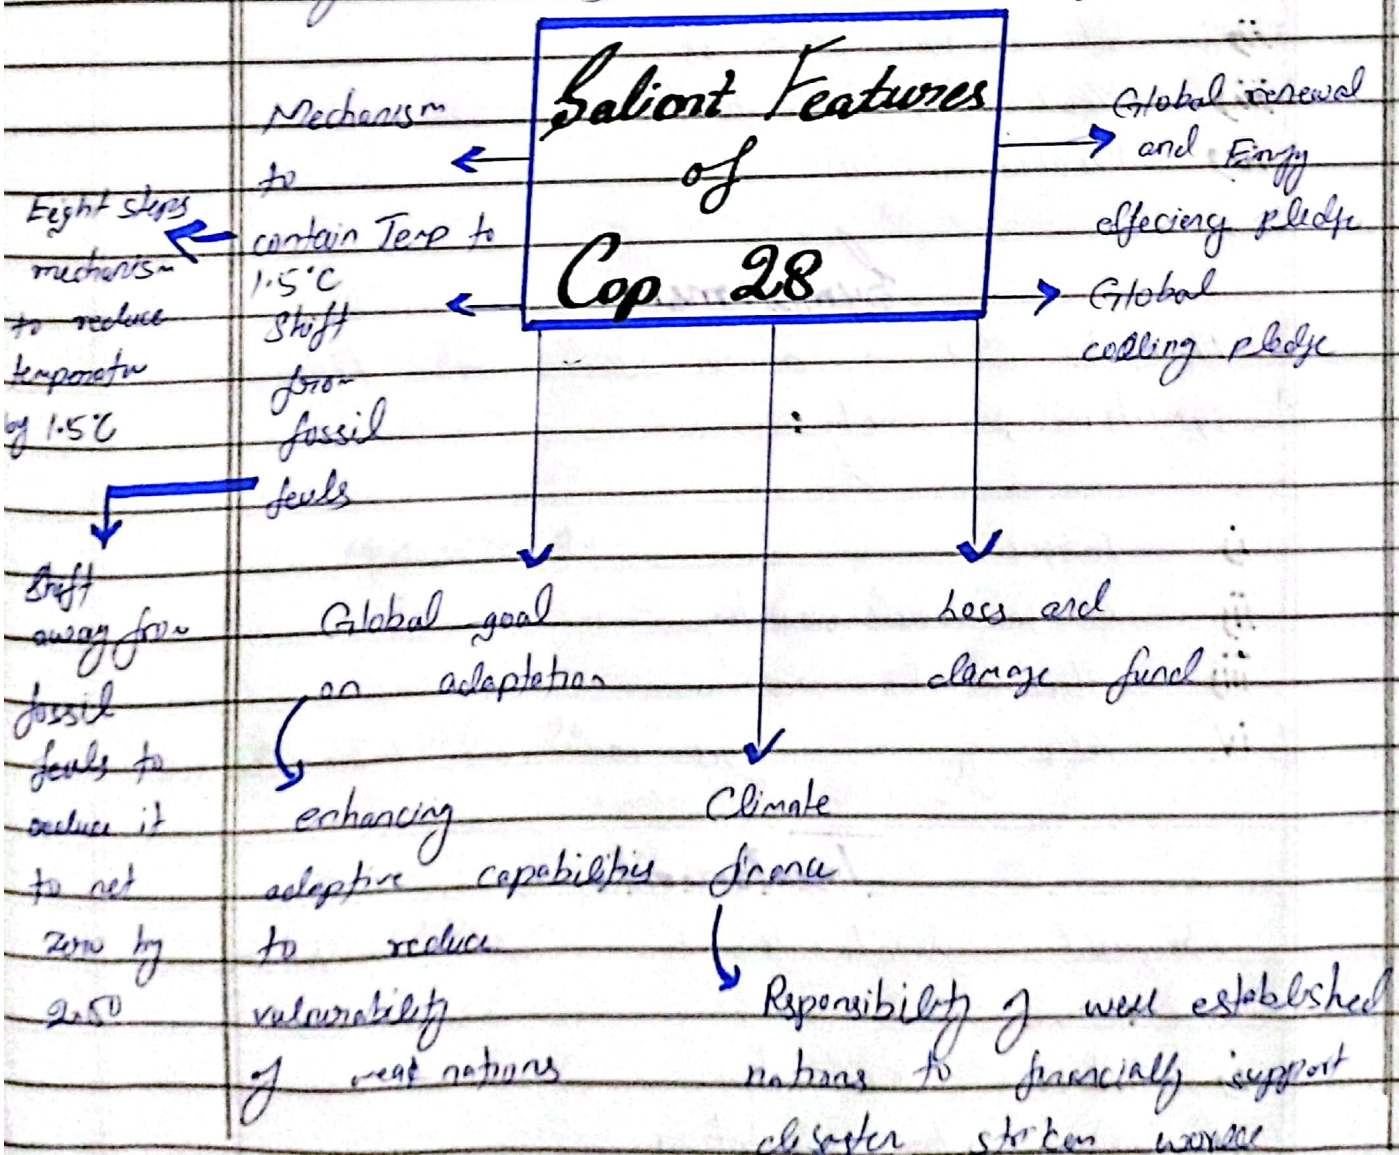 Salient Features
of
Cop 28
Mechanism
to
contain Temp to
1.5°C
Eight steps
mechanism
to reduce
temperatu
by 1.5°C
Shift
from
fossil
feuls
Shift
away from
fossil
feuls to
reduce it
to net
zero by
2050
Global renewal
and Energy
effeciency pledge
Global
cooling pledge
Global goal
on adaptation
enhancing
adaptive capabilities
to reduce
vulnerability
of weak nations
Climate
finance
Rsponsibility of well established
nations to financially support
disaster striken
Loss and
damage fund
i)
ii)
iii)
iv